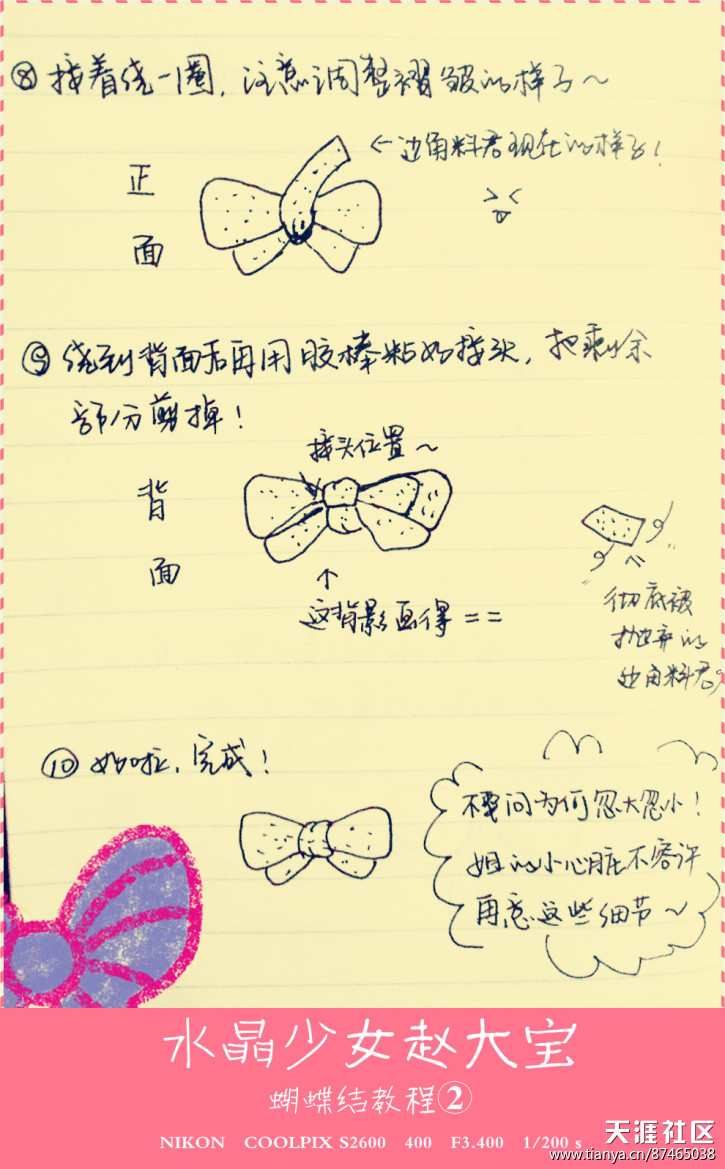 ⑧ 接着绕一圈，注意调整褶皱的样子～
←边角料君现在的样子！
正
面
⑨ 绕到背面后再用胶棒粘好接头，把剩余
部分剪掉！
接头位置～
背
面
↑
这背影画得 ==
彻底被
抛弃的
边角料君
⑩ 好啦，完成！
不要问为何忽大忽小！
姐的小心脏不容许
再意这些细节～
水晶少女赵大宝
蝴蝶结教程②
NIKON COOLPIX S2600 400 F3.400 1/200 s
天涯社区
www.tianya.cn/87465038